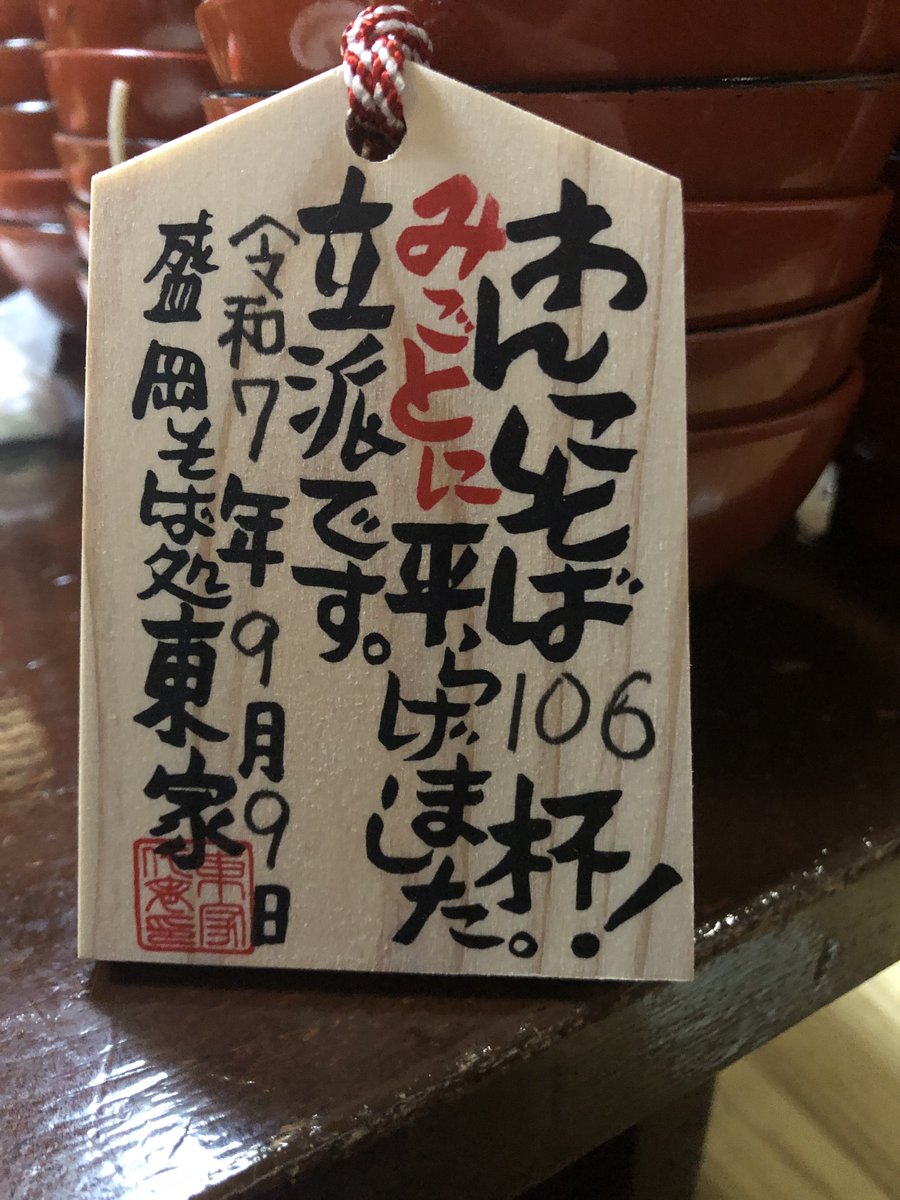 わんこそば106杯!
みごとに平らげました。
立派です。
令和7年9月9日
盛岡そば処東家